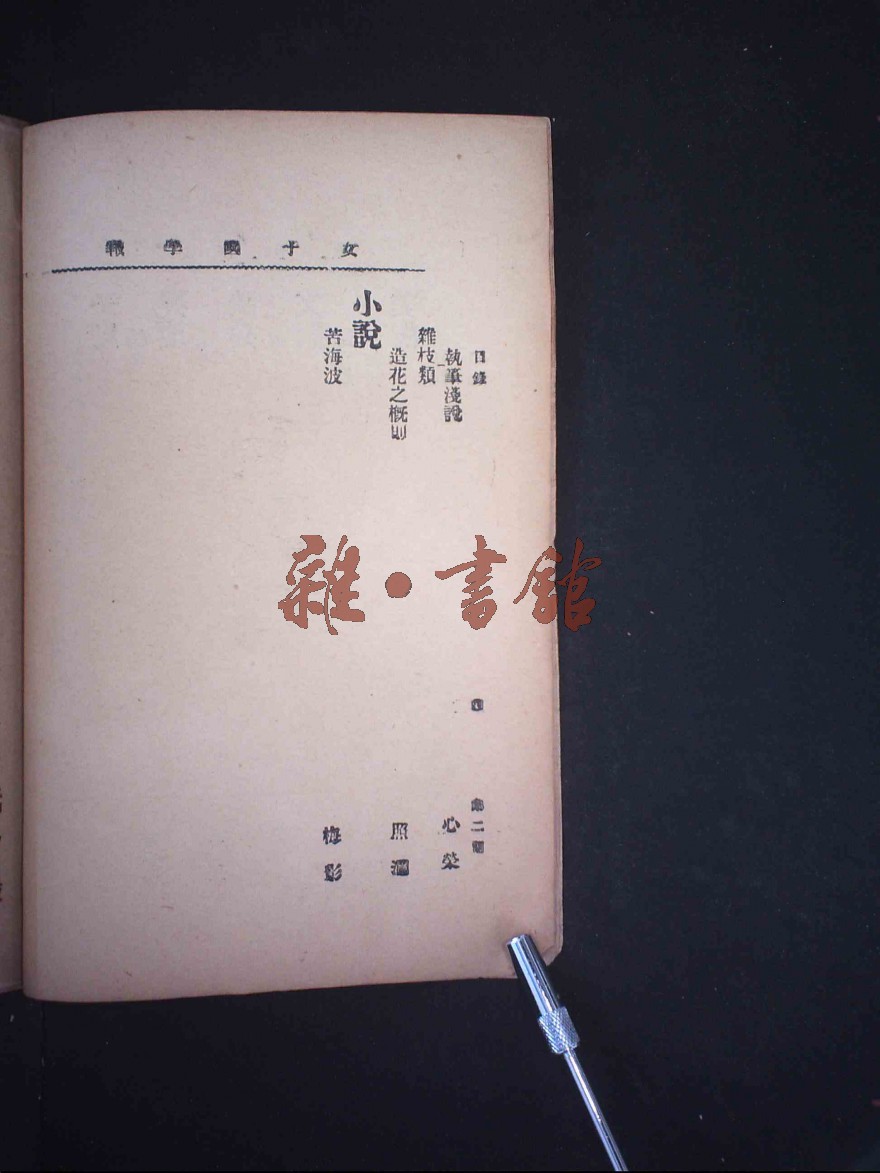 女子國學報
目錄 四 第二期
執筆淺說 心榮
雜枝類
造花之概則 照
小說
苦海波 梅影
雜·書館